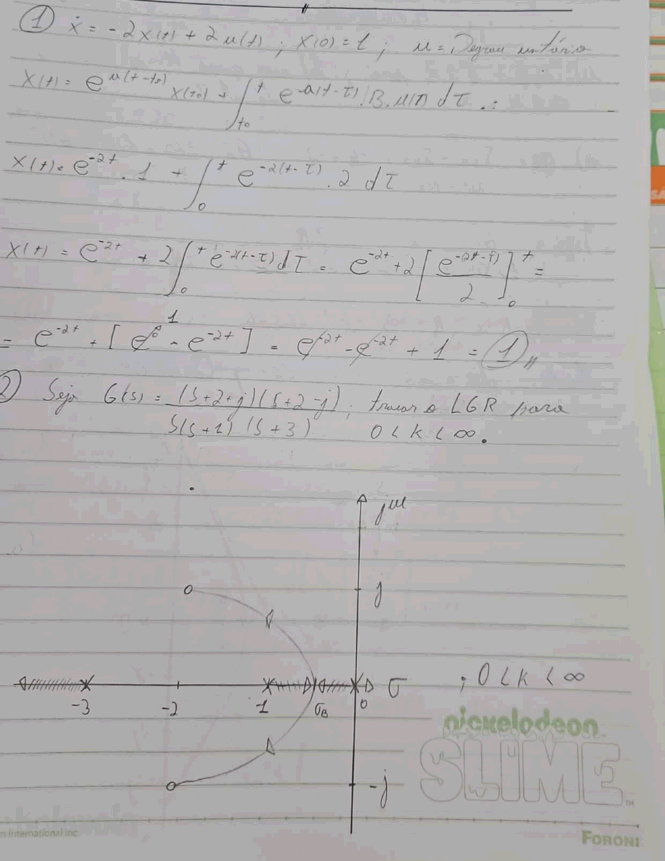 ① ẋ = -2x(t) + 2u(t) ; x(0) = 1 ; u = Degrau unitário
x(t) = e^{a(t-t₀)} x(t₀) + ∫_{t₀}^{t} e^{a(t-τ)}.B.u(τ) dτ ∴
x(t) = e^{-2t}.1 + ∫_0^t e^{-2(t-τ)}.2 dτ
x(t) = e^{-2t} + 2∫_0^t e^{-2(t-τ)} dτ = e^{-2t} + 2[e^{-2(t-τ)}/2]_0^t =
= e^{-2t} + [e^0 1 - e^{-2t}] = e^{-2t} - e^{-2t} + 1 = 1,,
② Seja G(s) = (s+2+j)(s+2-j) / s(s+1)(s+3) ; traçar o LGR para 0 < k < ∞.
jω
j
-3 -2 -1 σB 0 σ ; 0 < k < ∞
-j
nickelodeon
SLIME
™
m International Inc.
FORONI